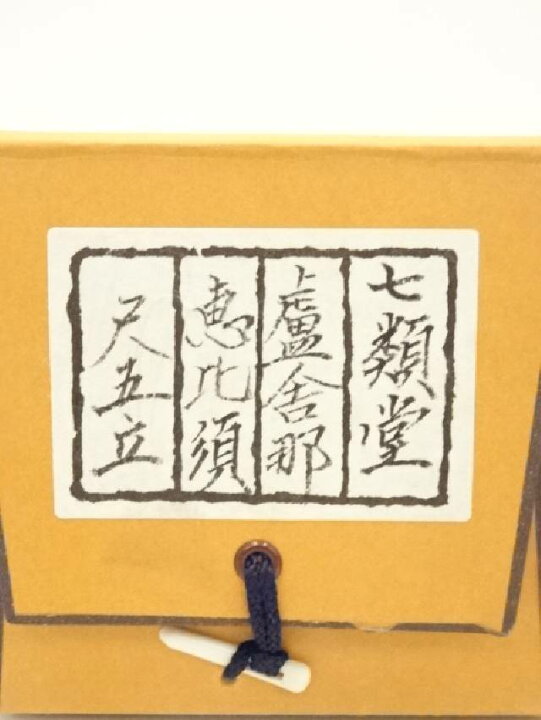 七類堂
盧舎那
恵比須
尺五立